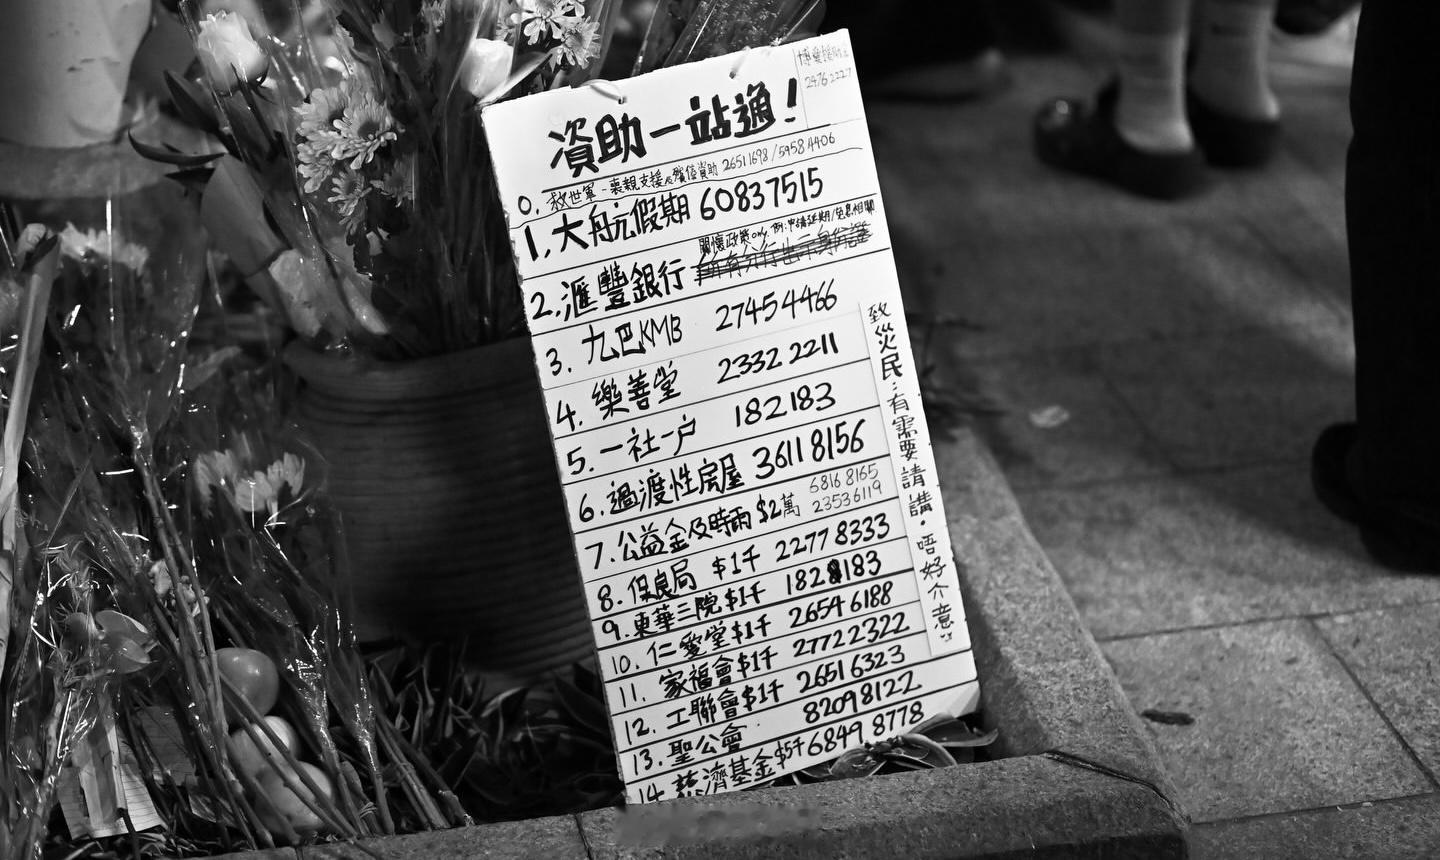 資助一站通！
博愛援助站
2476 2227
0. 救世軍 - 喪親支援及殯儀資助 26511698 / 5958 4406
1. 大航假期 60837515
2. 滙豐銀行 關懷政策 only. 例: 申請延期/免息相關
3. 九巴KMB 2745 4466
4. 樂善堂 2332 2211
5. 一社一户 182183
6. 過渡性房屋 3611 8156
7. 公益金及時雨 $2萬 6816 8165
2353 6119
8. 保良局 $1千 2277 8333
9. 東華三院 $1千 182 183
10. 仁愛堂 $1千 2654 6188
11. 家福會 $1千 27722322
12. 工聯會 $1千 2651 6323
13. 聖公會 82098122
14. 慈濟基金 $5千 6849 8778
致災民：有需要請講。唔好介意